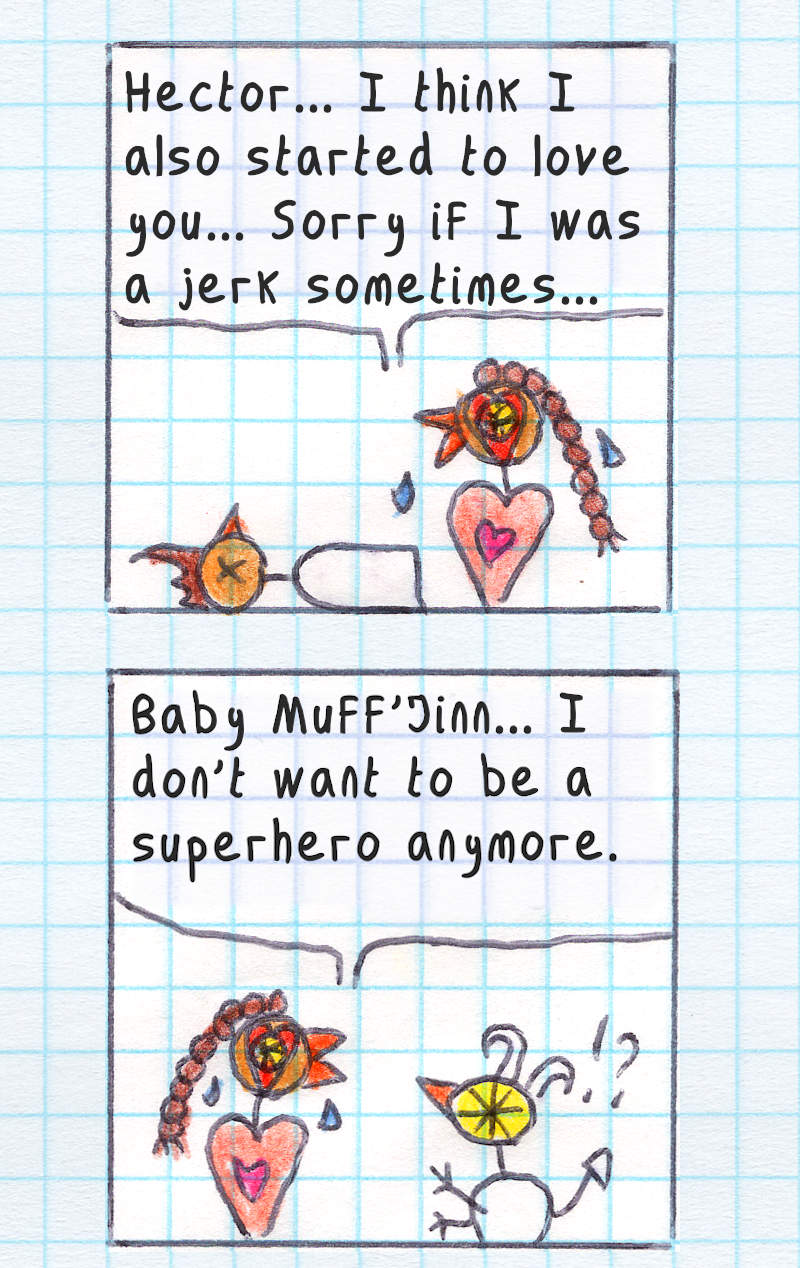 Hector... I think I
also started to love
you... Sorry if I was
a jerk sometimes...
Baby Muff'Jinn... I
don't want to be a
superhero anymore.
!?